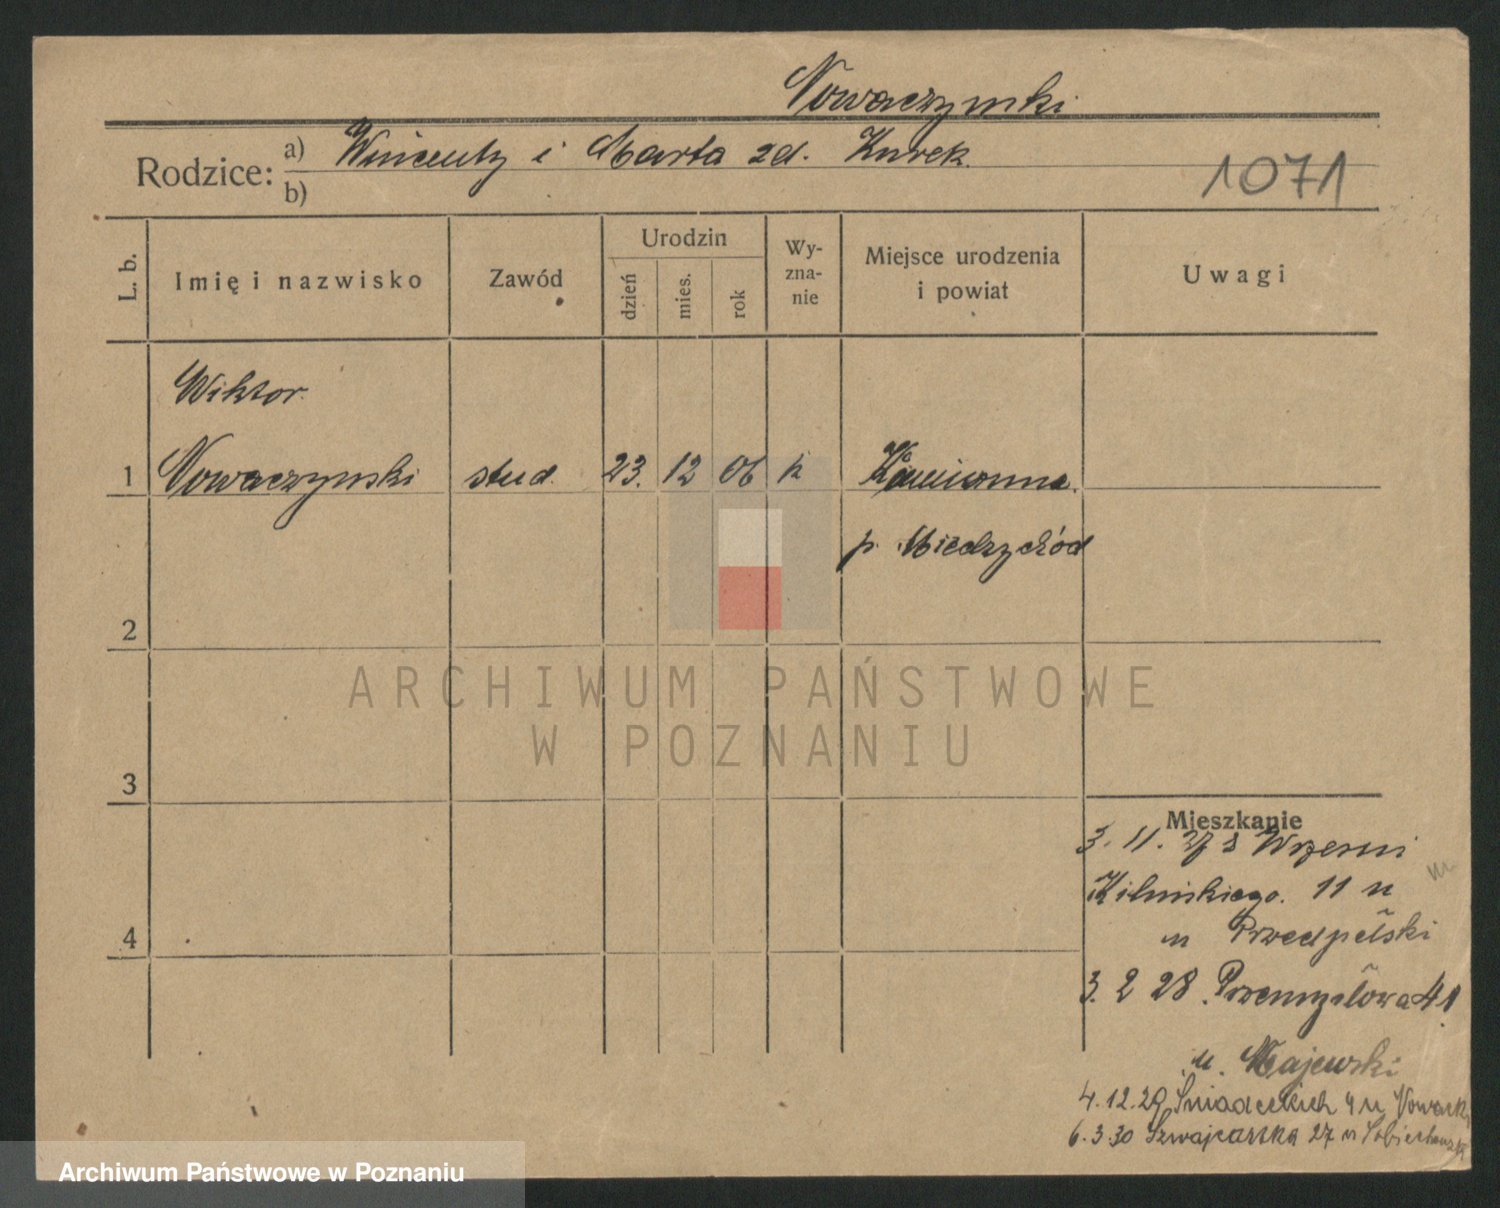 Nowaczyński
Rodzice: a) Wincenty i Marta zd. Kurek
b)
1071
L. b. Imię i nazwisko Zawód Urodzin dzień mies. rok Wy-zna-nie Miejsce urodzenia i powiat Uwagi
Wiktor
1 Nowaczyński stud. 23. 12 06 k Kamionna.
p. Międzychód
2
3
4
ARCHIWUM PAŃSTWOWE
W POZNANIU
Mieszkanie
3. 11. 27 z Wrześni
Kilińskiego. 11 u
Przedpełski
3. 2 28. Przemysłowa 41
u. Majewski
4.12.29 Śniadeckich 4 u Nowack
6.3.30 Szwajcarska 27
Archiwum Państwowe w Poznaniu